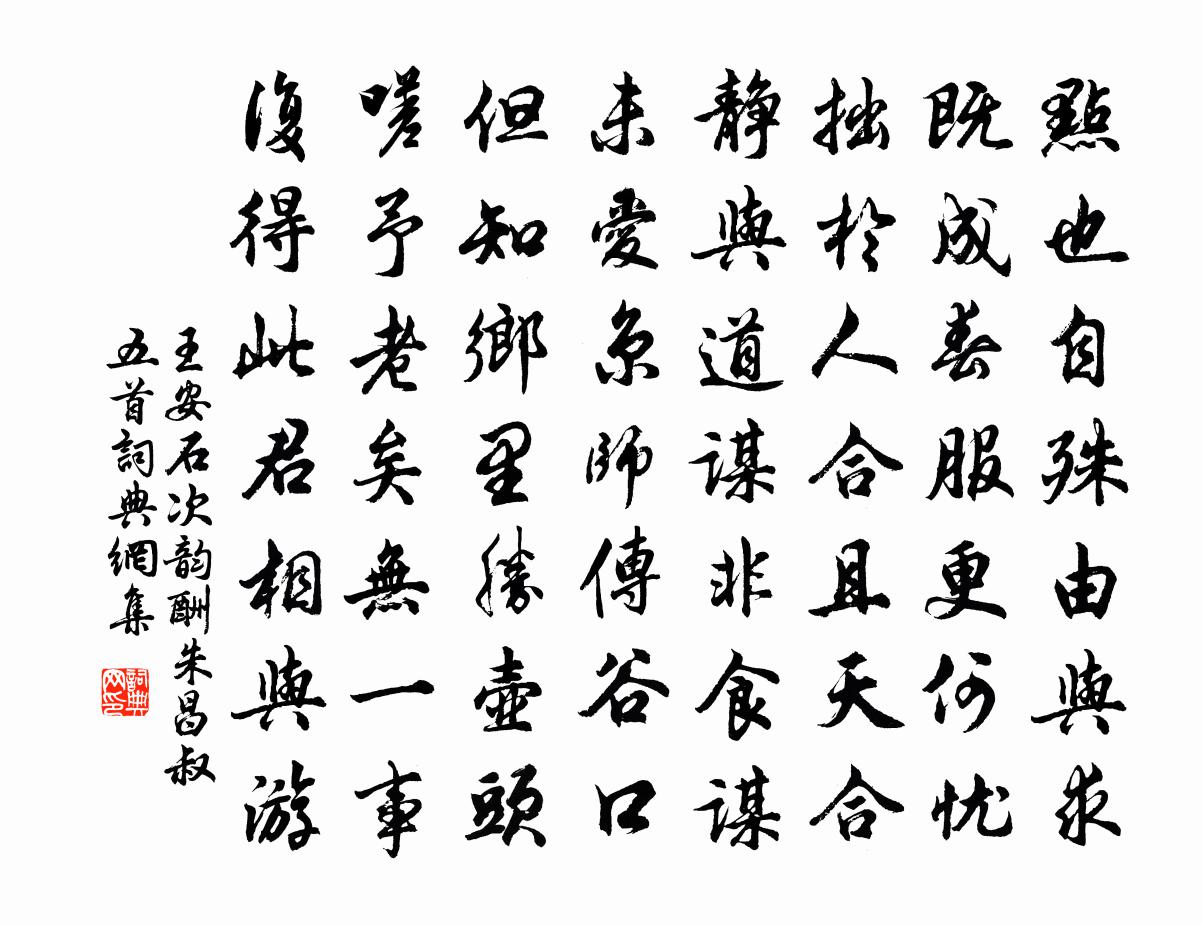 點也自殊由與求
既成春服更何忧
拙於人合且天合
静與道謀非食謀
未愛京師傳谷口
但知鄉里勝壺頭
嗟予老矣無一事
復得此君相與游
王安石次韵酬朱昌叔
五首詞典網集
詞典网印